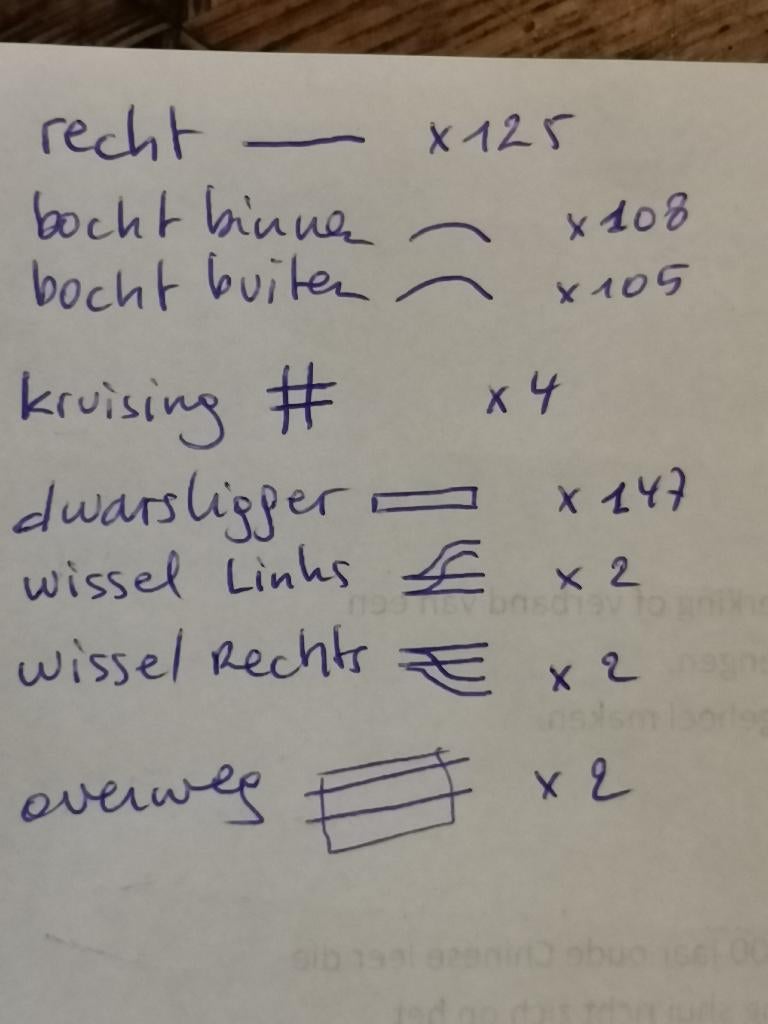 recht — x 125
bocht binnen x 108
bocht buiten x 105
kruising # x 4
dwarsligger x 147
wissel Links x 2
wissel Rechts x 2
overweg x 2